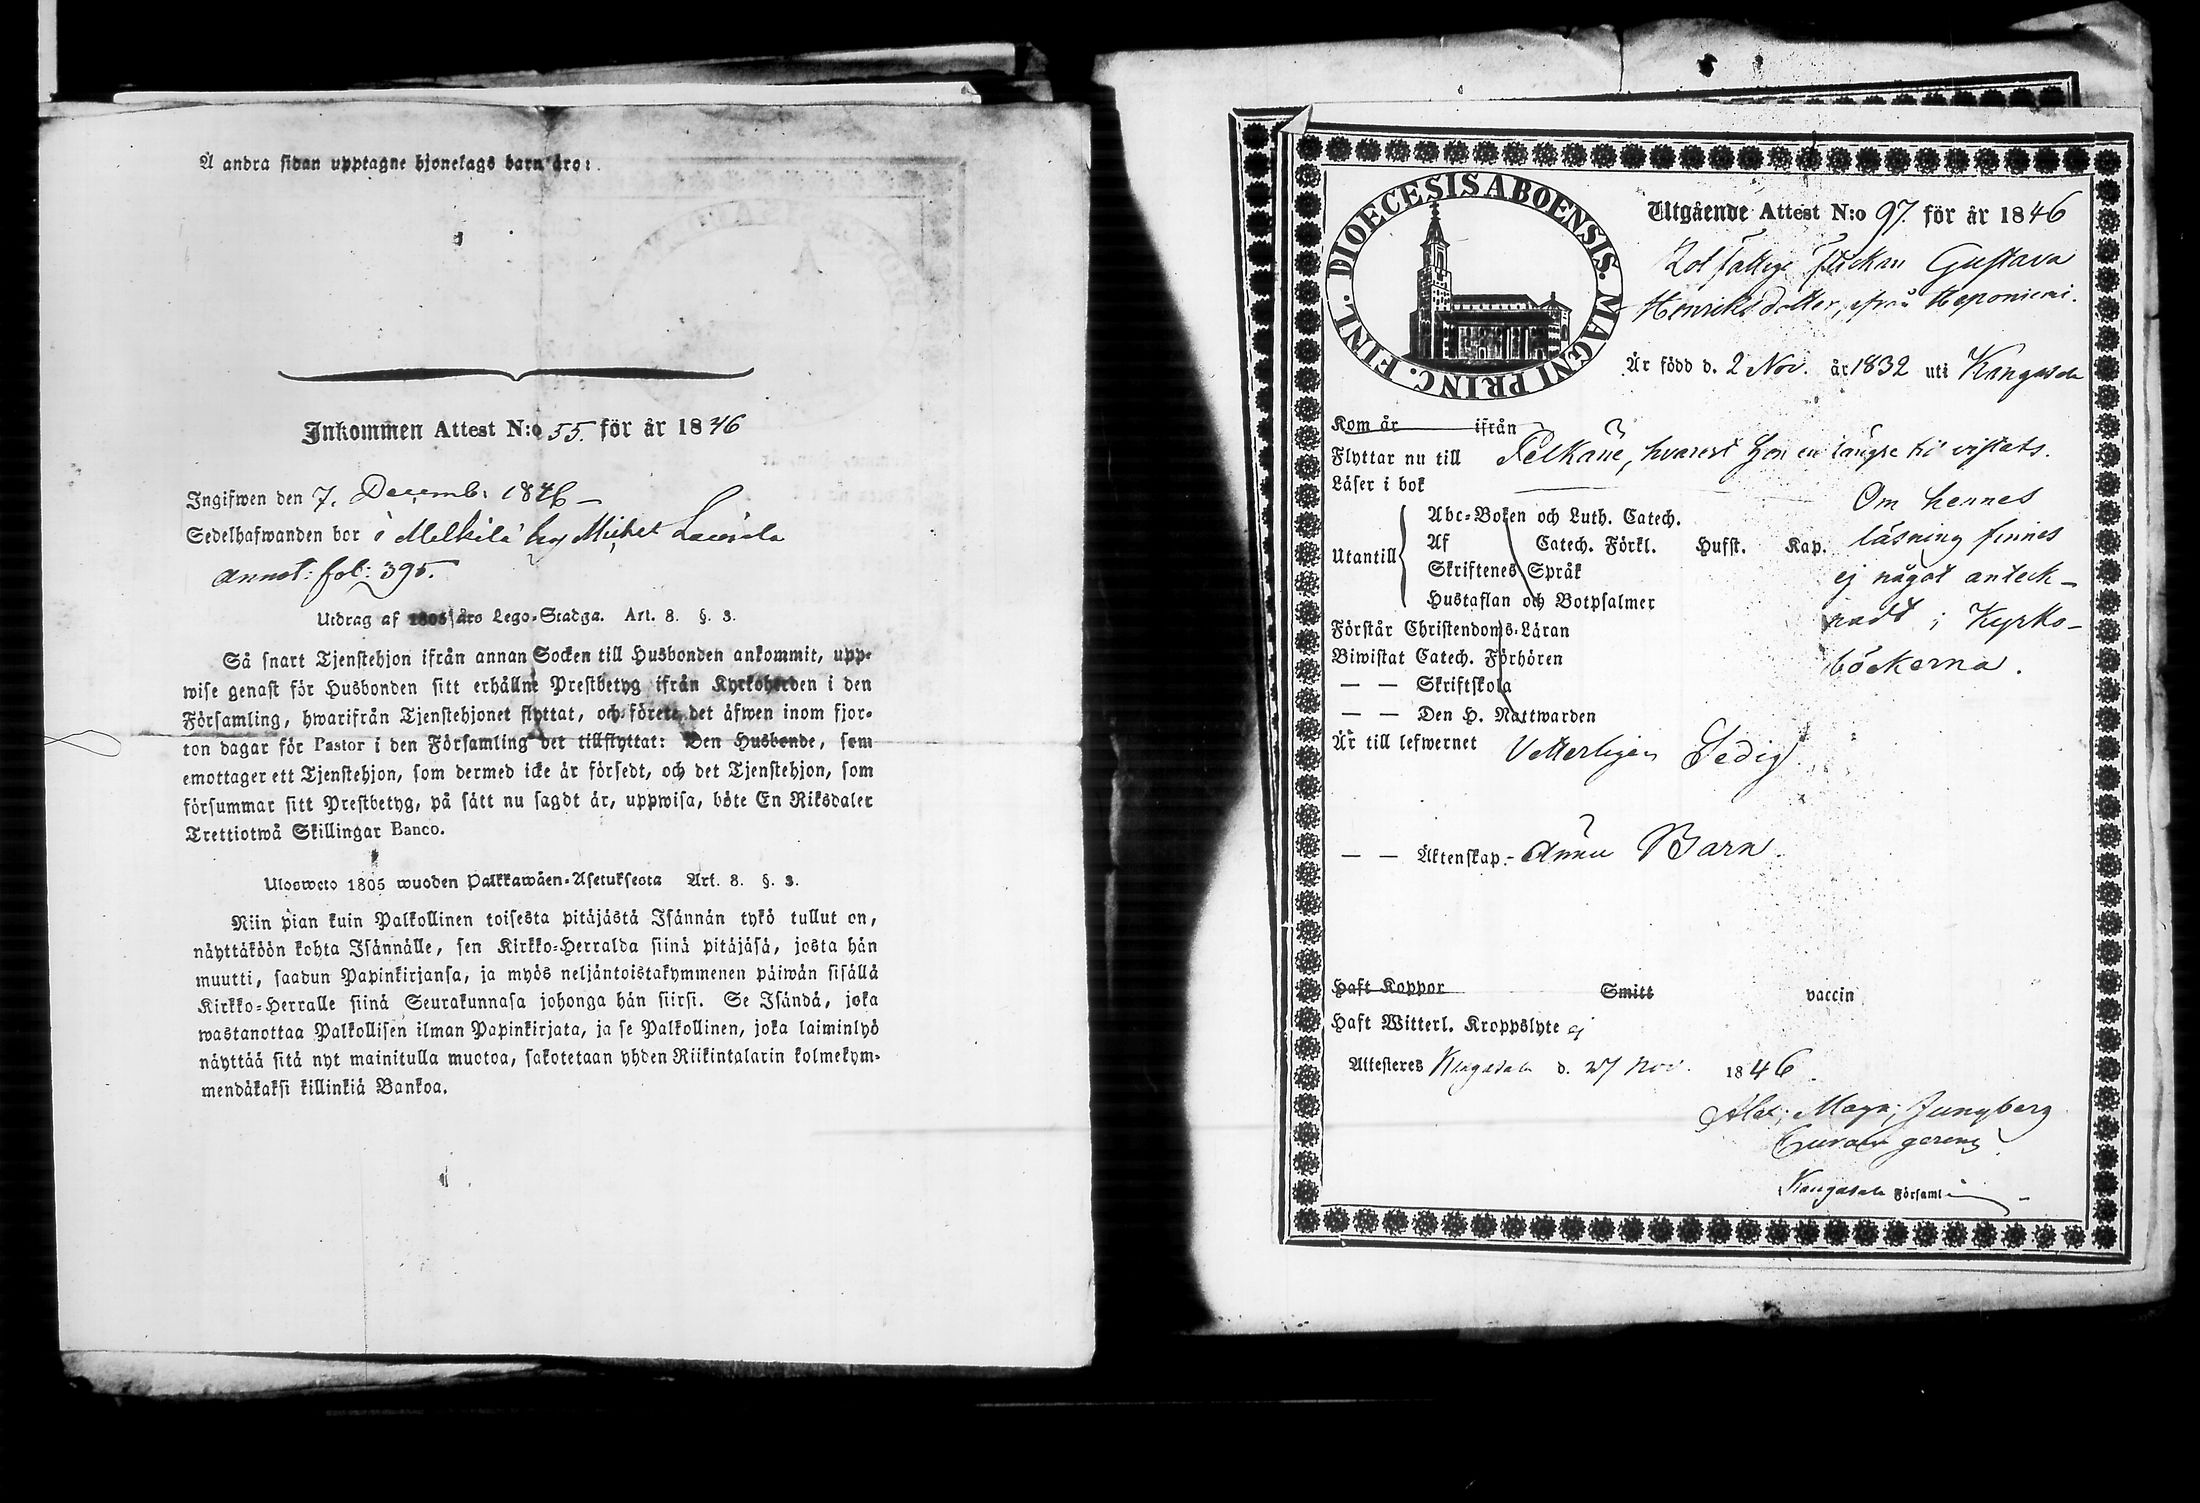 Å andra sidan upptagne hjonelags barn äro:
Inkommen Attest N:o 55. för år 1846
Ingifwen den 7. Decemb: 1846
Sedelhafwanden bor i Mälkilä hos Michel
annot: fol: 395.
Utdrag af 1805 års Lego-Stadga. Art. 8. §. 3.
Så snart Tjenstehjon ifrån annan Socken till Husbonden ankommit, upp-
wise genast för Husbonden sitt erhållne Prestbetyg ifrån Kyrkoherden i den
Församling, hwarifrån Tjenstehjonet flyttat, och förete det äfwen inom fjor-
ton dagar för Pastor i den Församling det tillflyttat: Den Husbonde, som
emottager ett Tjenstehjon, som dermed icke är försedt, och det Tjenstehjon, som
försummar sitt Prestbetyg, på sätt nu sagdt är, uppwisa, böte En Riksdaler
Trettiotwå Skillingar Banco.
Ulosweto 1805 wuoden Palkkawäen-Asetuksesta Art. 8. §. 3.
Niin pian kuin Palkollinen toisesta pitäjästä Isännän tykö tullut on,
näyttäköön kohta Isännälle, sen Kirkko-Herralda siinä pitäjäsä, josta hän
muutti, saadun Papinkirjansa, ja myös neljäntoistakymmenen päiwän sisällä
Kirkko-Herralle siinä Seurakunnasa johonga hän siirsi. Se Isändä, joka
wastanottaa Palkollisen ilman Papinkirjata, ja se Palkollinen, joka laiminlyö
näyttää sitä nyt mainitulla muotoa, sakotetaan yhden Riikintalarin kolmekym-
mendäkaksi killinkiä Bankoa.
DIOECESIS ABOENSIS. MAGNI PRINC. FINL.
Utgående Attest N:o 97. för år 1846
Rotfattige Flickan Gustava
Henriksdotter, ifrån Heponiemi.
Är född d. 2 Nov. år 1832 uti Kangasala
Kom år ifrån
Flyttar nu till Pelkäne, hvarest hon en längre tid vistats.
Läser i bok
Abc-Boken och Luth. Catech.
Utantill Af Catech. Förkl. Hufst. Kap.
Skriftenes Språk
Hustaflan och Botpsalmer
Om hennes
läsning finnes
ej något anteck-
nadt i Kyrko-
böckerna.
Förstår Christendoms-Läran
Biwistat Catech. Förhören
— — Skriftskola
— — Den H. Nattwarden
Är till lefwernet Vetterligen Ledig
— — Äktenskap. ännu Barn
Haft Koppor Smitt vaccin
Haft Witterl. Kroppslyte ej
Attesteres Kangasala d. 27 Nov. 1846
Alex. Magn. Ljungberg
Curam gerens
Kangasala Församl